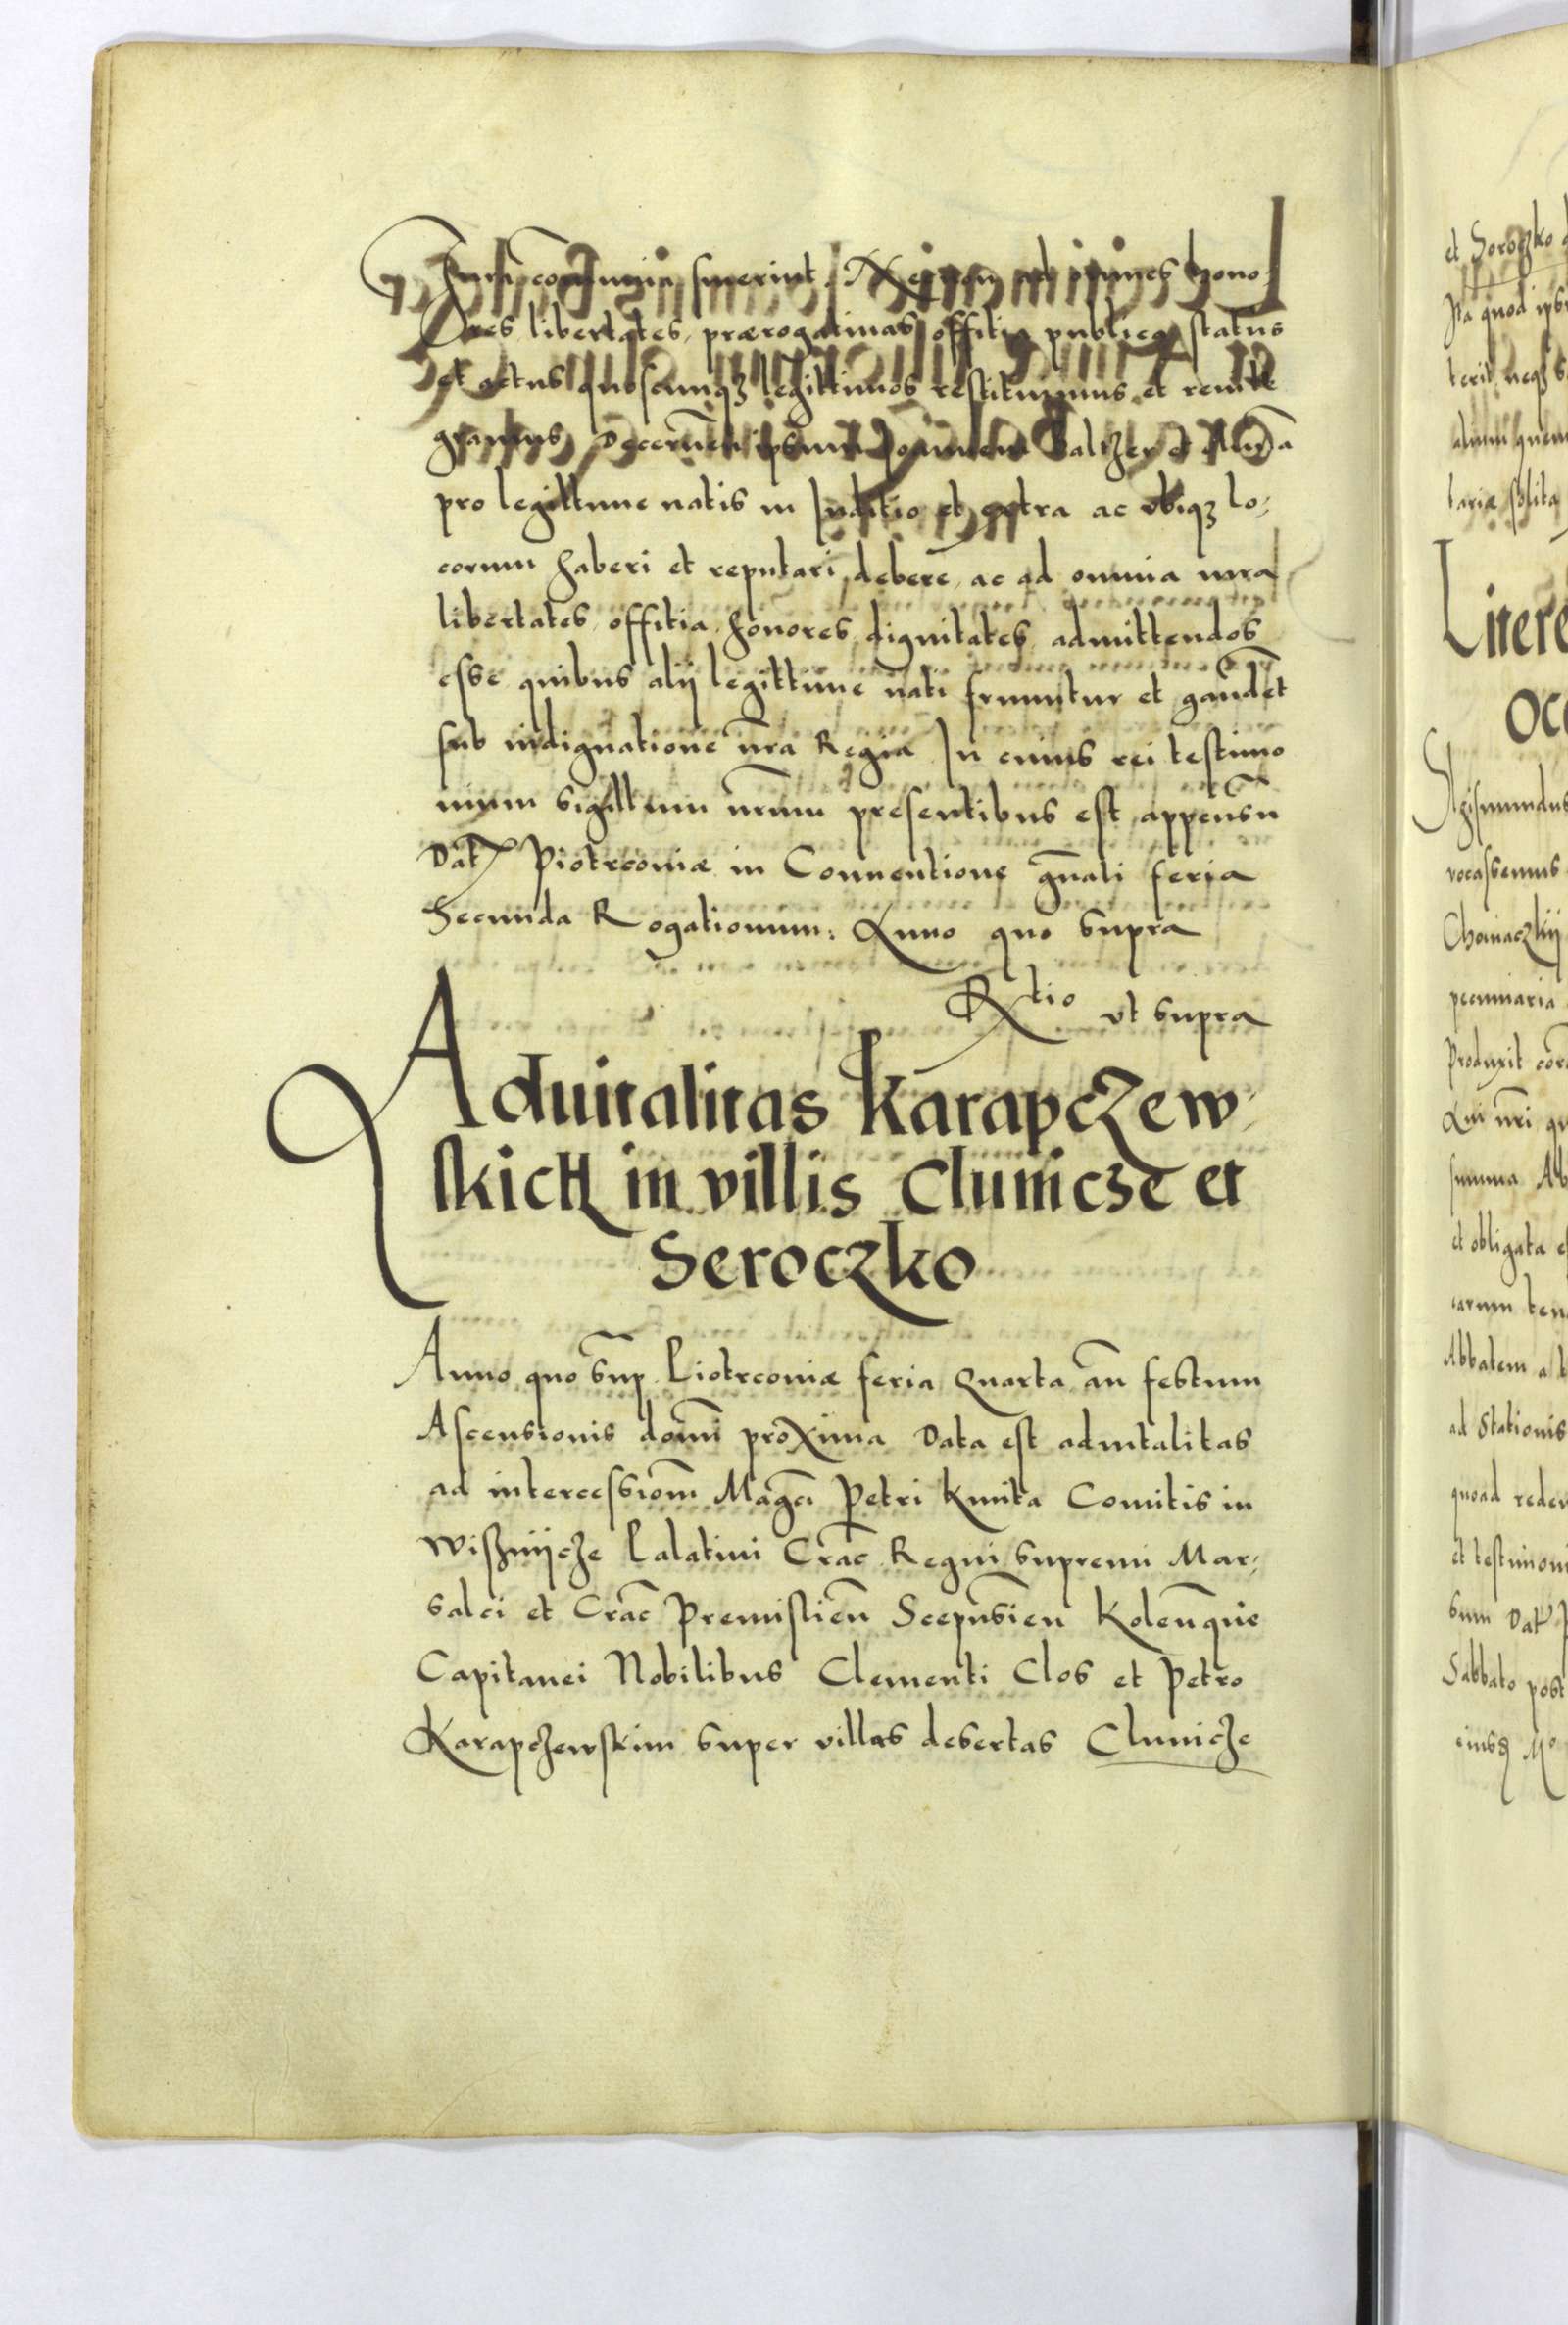 Jura co͞munia fuerint. Necnon ad omnes hono-
res, libertates, prærogatiuas, offitia publica, status
et actus quoscunq3 legittimos restituimus et reinte
gramus, Decernen̄ ipsum Joannem Baltzer et Annā
pro legittime natis in Juditio et extra ac vbiq3 lo-
corum haberi et reputari debere, ac ad omnia iura
libertates, offitia, honores, dignitates, admittendos
esse quibus alij legittime nati fruuntur et gaudēt
sub indignatione nr̄a Regia In cuius rei testimo
nium Sigillum nr̄um presentibus est appensū
Dat Piotrconiæ in Conuentione gn̄ali feria
Secunda Rogationum: Anno quo supra
Rtio vt supra
Aduitalitas Karapczew-
skich in villis Clunicze et
Seroczko
Anno quo sup̄ Piotrconiæ feria Quarta an̄ festum
Ascensionis domī proxima Data est aduitalitas
ad intercessiom̄ Magcī Petri Kmita Comitis in
Wisznijcze Palatini Crac̄ Regni Supremi Mar-
salci et Crac̄ Premislien̄ Scepusien̄ Kolen̄que
Capitanei Nobilibus Clementi Clos et Petro
Karapczewskim super villas desertas Clunicze
et Soroczko
Ita quod ips
terit neq3
alium quem
tariæ solita
Litere
oc
Sigismundus
vocassemus
Choinaczkij
pecuniaria
Produxit cor
Qui nr̄i
summa Ab
et obligata
earum ten
Abbatem a
ad Stationis
quoad redem
et testimoni
sum Dat P
Sabbato post
eiusd Mo